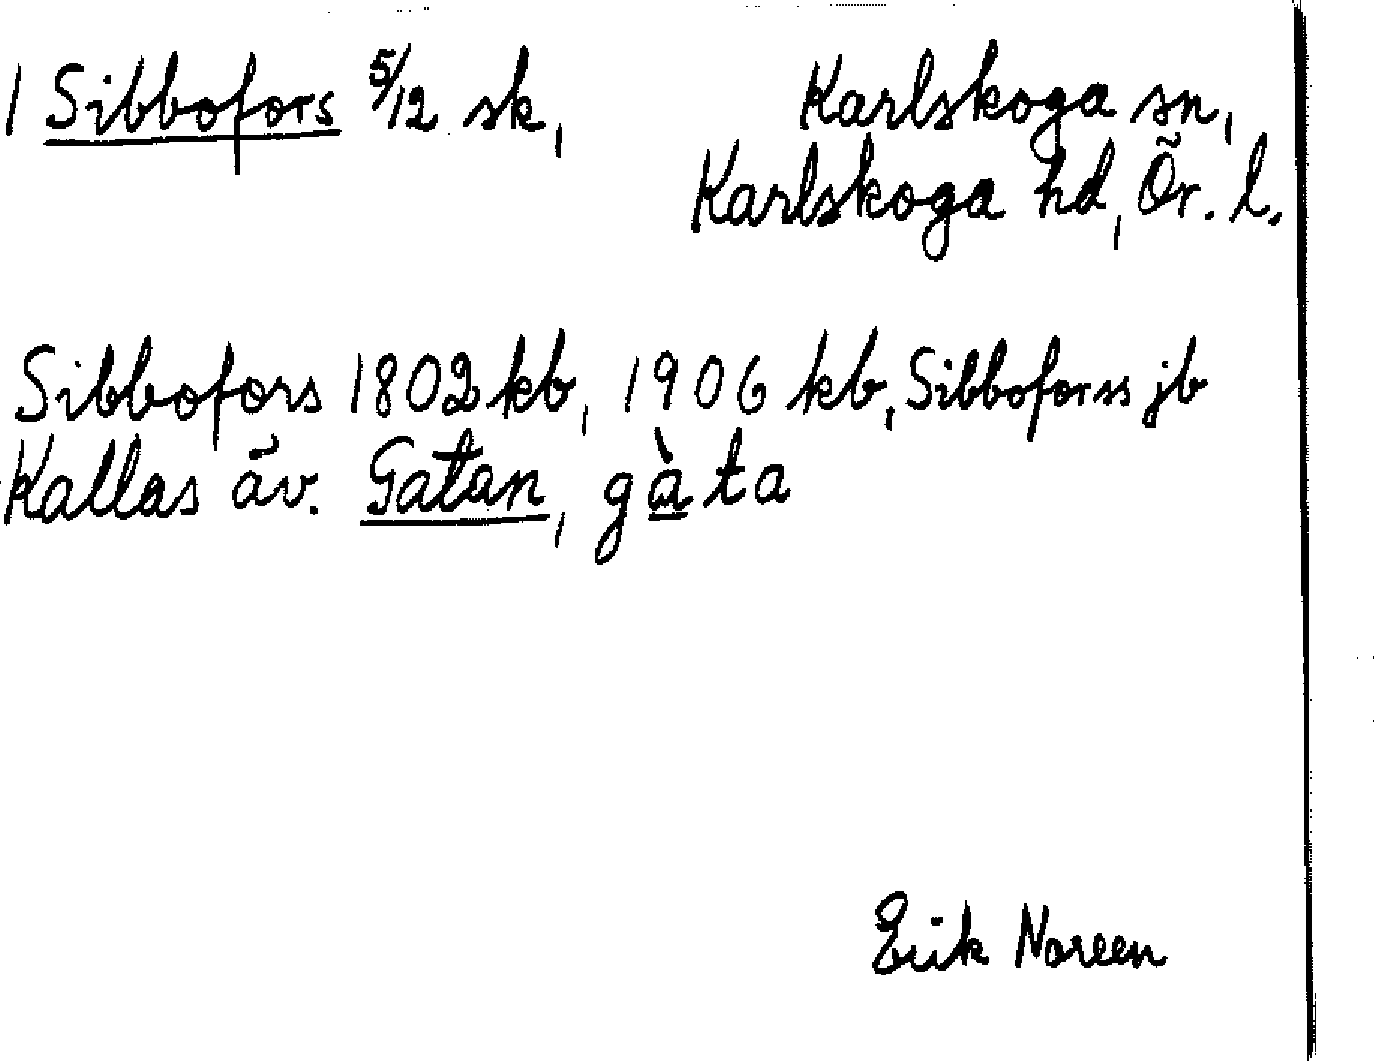 1 Sibbofors 5/12 sk, Karlskoga sn,
Karlskoga hd, Ör. l.
Sibbofors 1802 kb, 1906 kb, Sibboforss jb
Kallas äv. Gatan, gàta
Erik Noreen